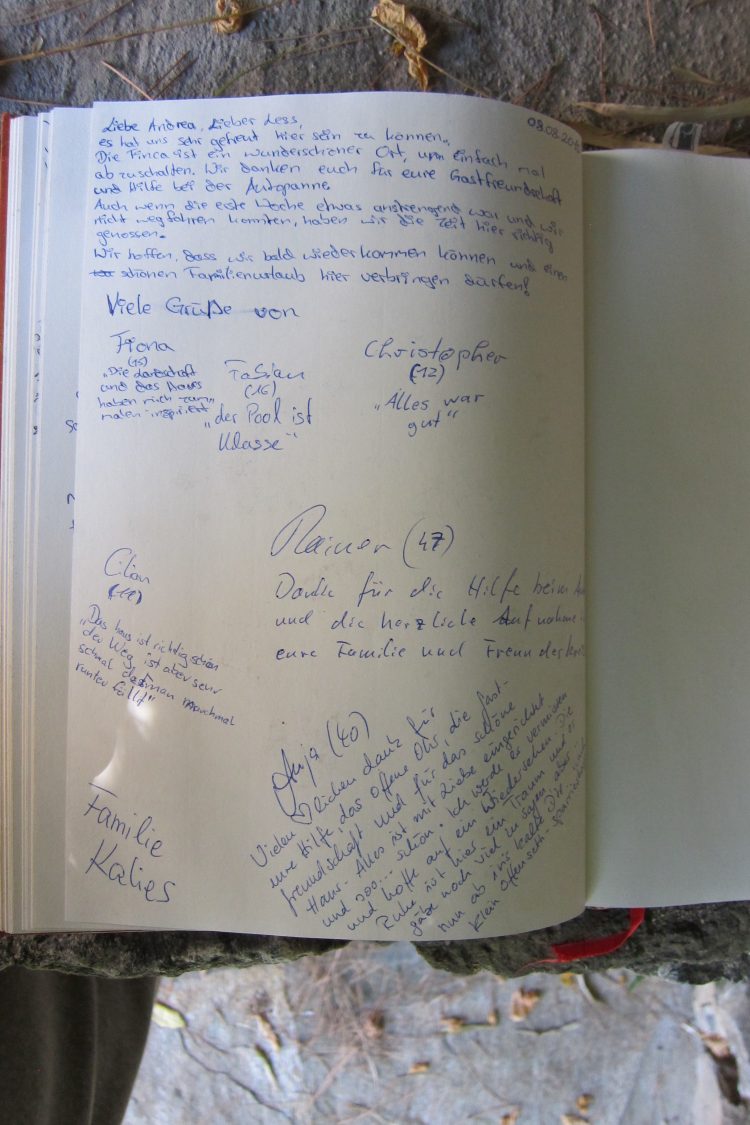 03.08.20
Liebe Andrea, Lieber Dess,
es hat uns sehr gefreut hier sein zu können.
Die Finca ist ein wunderschöner Ort, um einfach mal
abzuschalten. Wir danken euch für eure Gastfreundschaft
und Hilfe bei der Autopanne
Auch wenn die erste Woche etwas anstrengend war und wir
nicht wegfahren konnten, haben wir die Zeit hier richtig
genossen.
Wir hoffen, dass wir bald wiederkommen können und einen
schönen Familienurlaub hier verbringen dürfen!
Viele Grüße von
Fiona
(15)
„Die Landschaft
und das Haus
haben mich zum
malen inspiriert"
Fabian
(16)
„der Pool ist
Klasse"
Christopher
(12)
„Alles war
gut"
Cilian
(11)
„Das haus ist richtig schön
der Weg ist aber sehr
schmal das man manchmal
runter fällt"
Rainer (47)
Danke für die Hilfe beim
und die herzliche Aufnahme
eure Familie und Freundeskreis
Anja (40)
Vielen lichen dank für
eure Hilfe, das offene Ohr, die Gast-
freundschaft und für das schöne
Haus. Alles ist mit Liebe eingerichtet
und sooo... schön. Ich werde es vermissen
und hoffe auf ein Wiedersehen. Die
Ruhe ist hier ein Traum und
gäbe noch viel zu sagen aber
nun ab ins kalte
klein
Familie
Kalies